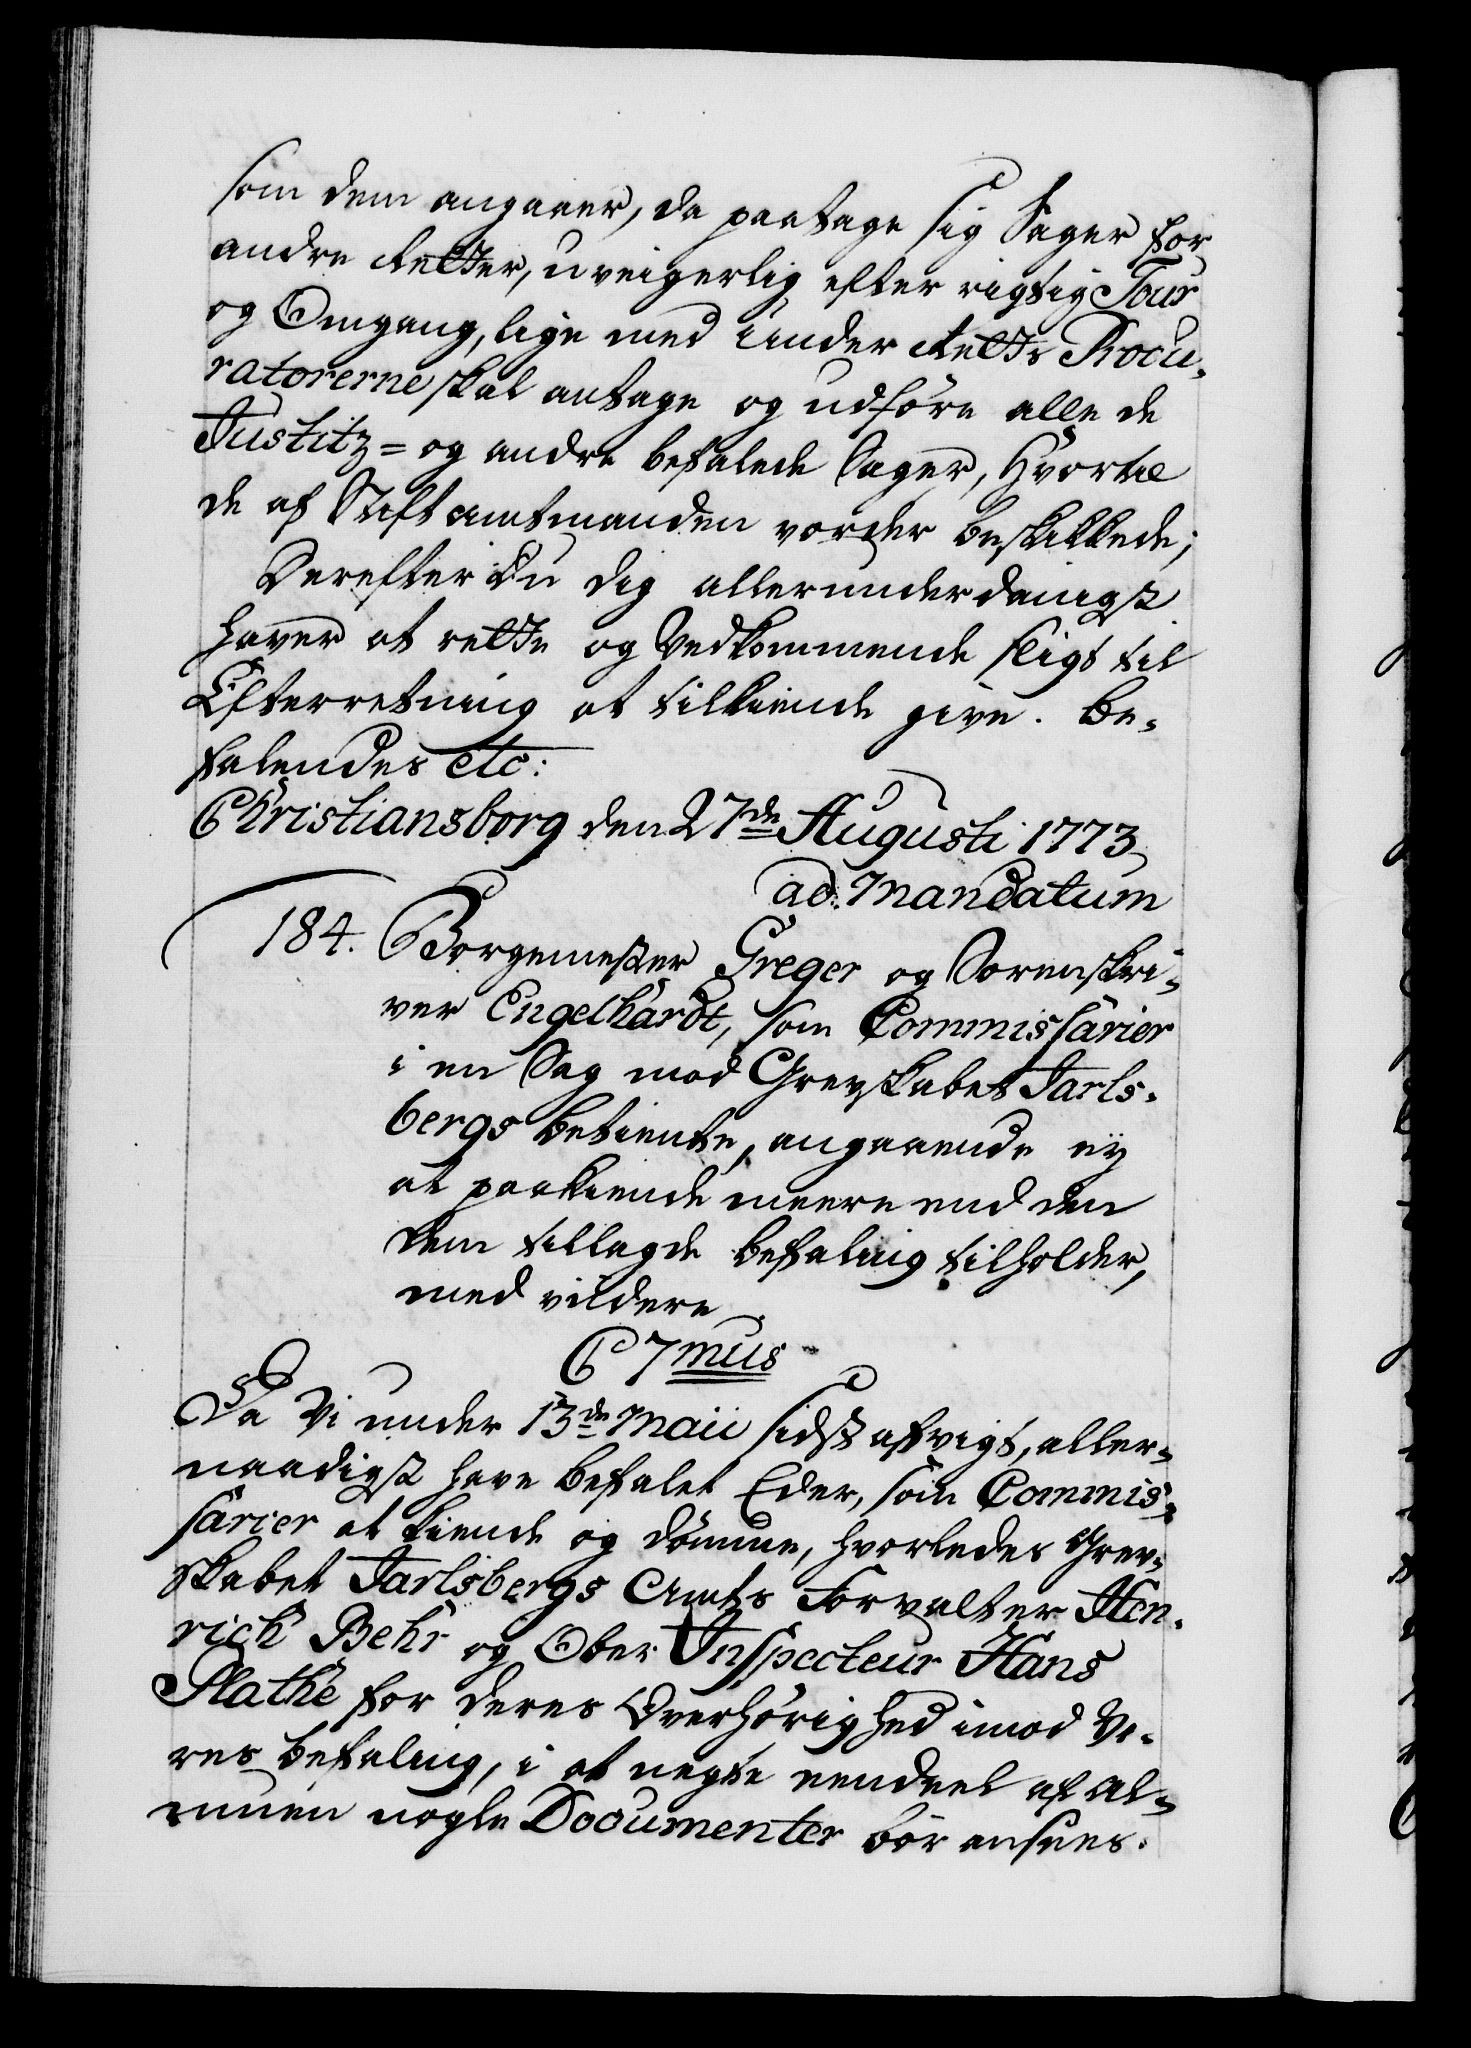 som dem angaaer, de paatage sig Sager for
andre Retter, uveigerlig efter rigtig Tour
og Omgang, lige med Under Retts Procu-
ratorerne skal antage og udføre alle de
Justitz= og andre befalede Sager, hvortil
de af Stiftamtmanden vorder beskikkede;
Derefter du dig allerunderdanigst
haver at rette og Vedkommende sligt til
Efterretning at tilkiende give. Be-
falendes etc:
Christiansborg den 27de Augusti 1773
ad Mandatum
184. Borgemester Greger og Sorenskri-
ver Engelhardt, som Commissarier
i en Sag mod Grevskabet Jarls-
bergs betiente, angaaende ey
at paakiende meere end den
dem tillagde befaling tilholder,
med videre
C 7mus
Da Vi under 13de Maii sidst afvigt, aller-
naadigst have befalet Eder, som Commis-
sarier at kiende og dømme, hvorledes Grev-
skabet Jarlsbergs Amts Forvalter Hen-
rich Behr og Ober Inspecteur Hans
Plathe for deres Overhørighed imod Vo-
res befaling, i at negte eendeel af Al-
muen nogle Documenter bør ansees.